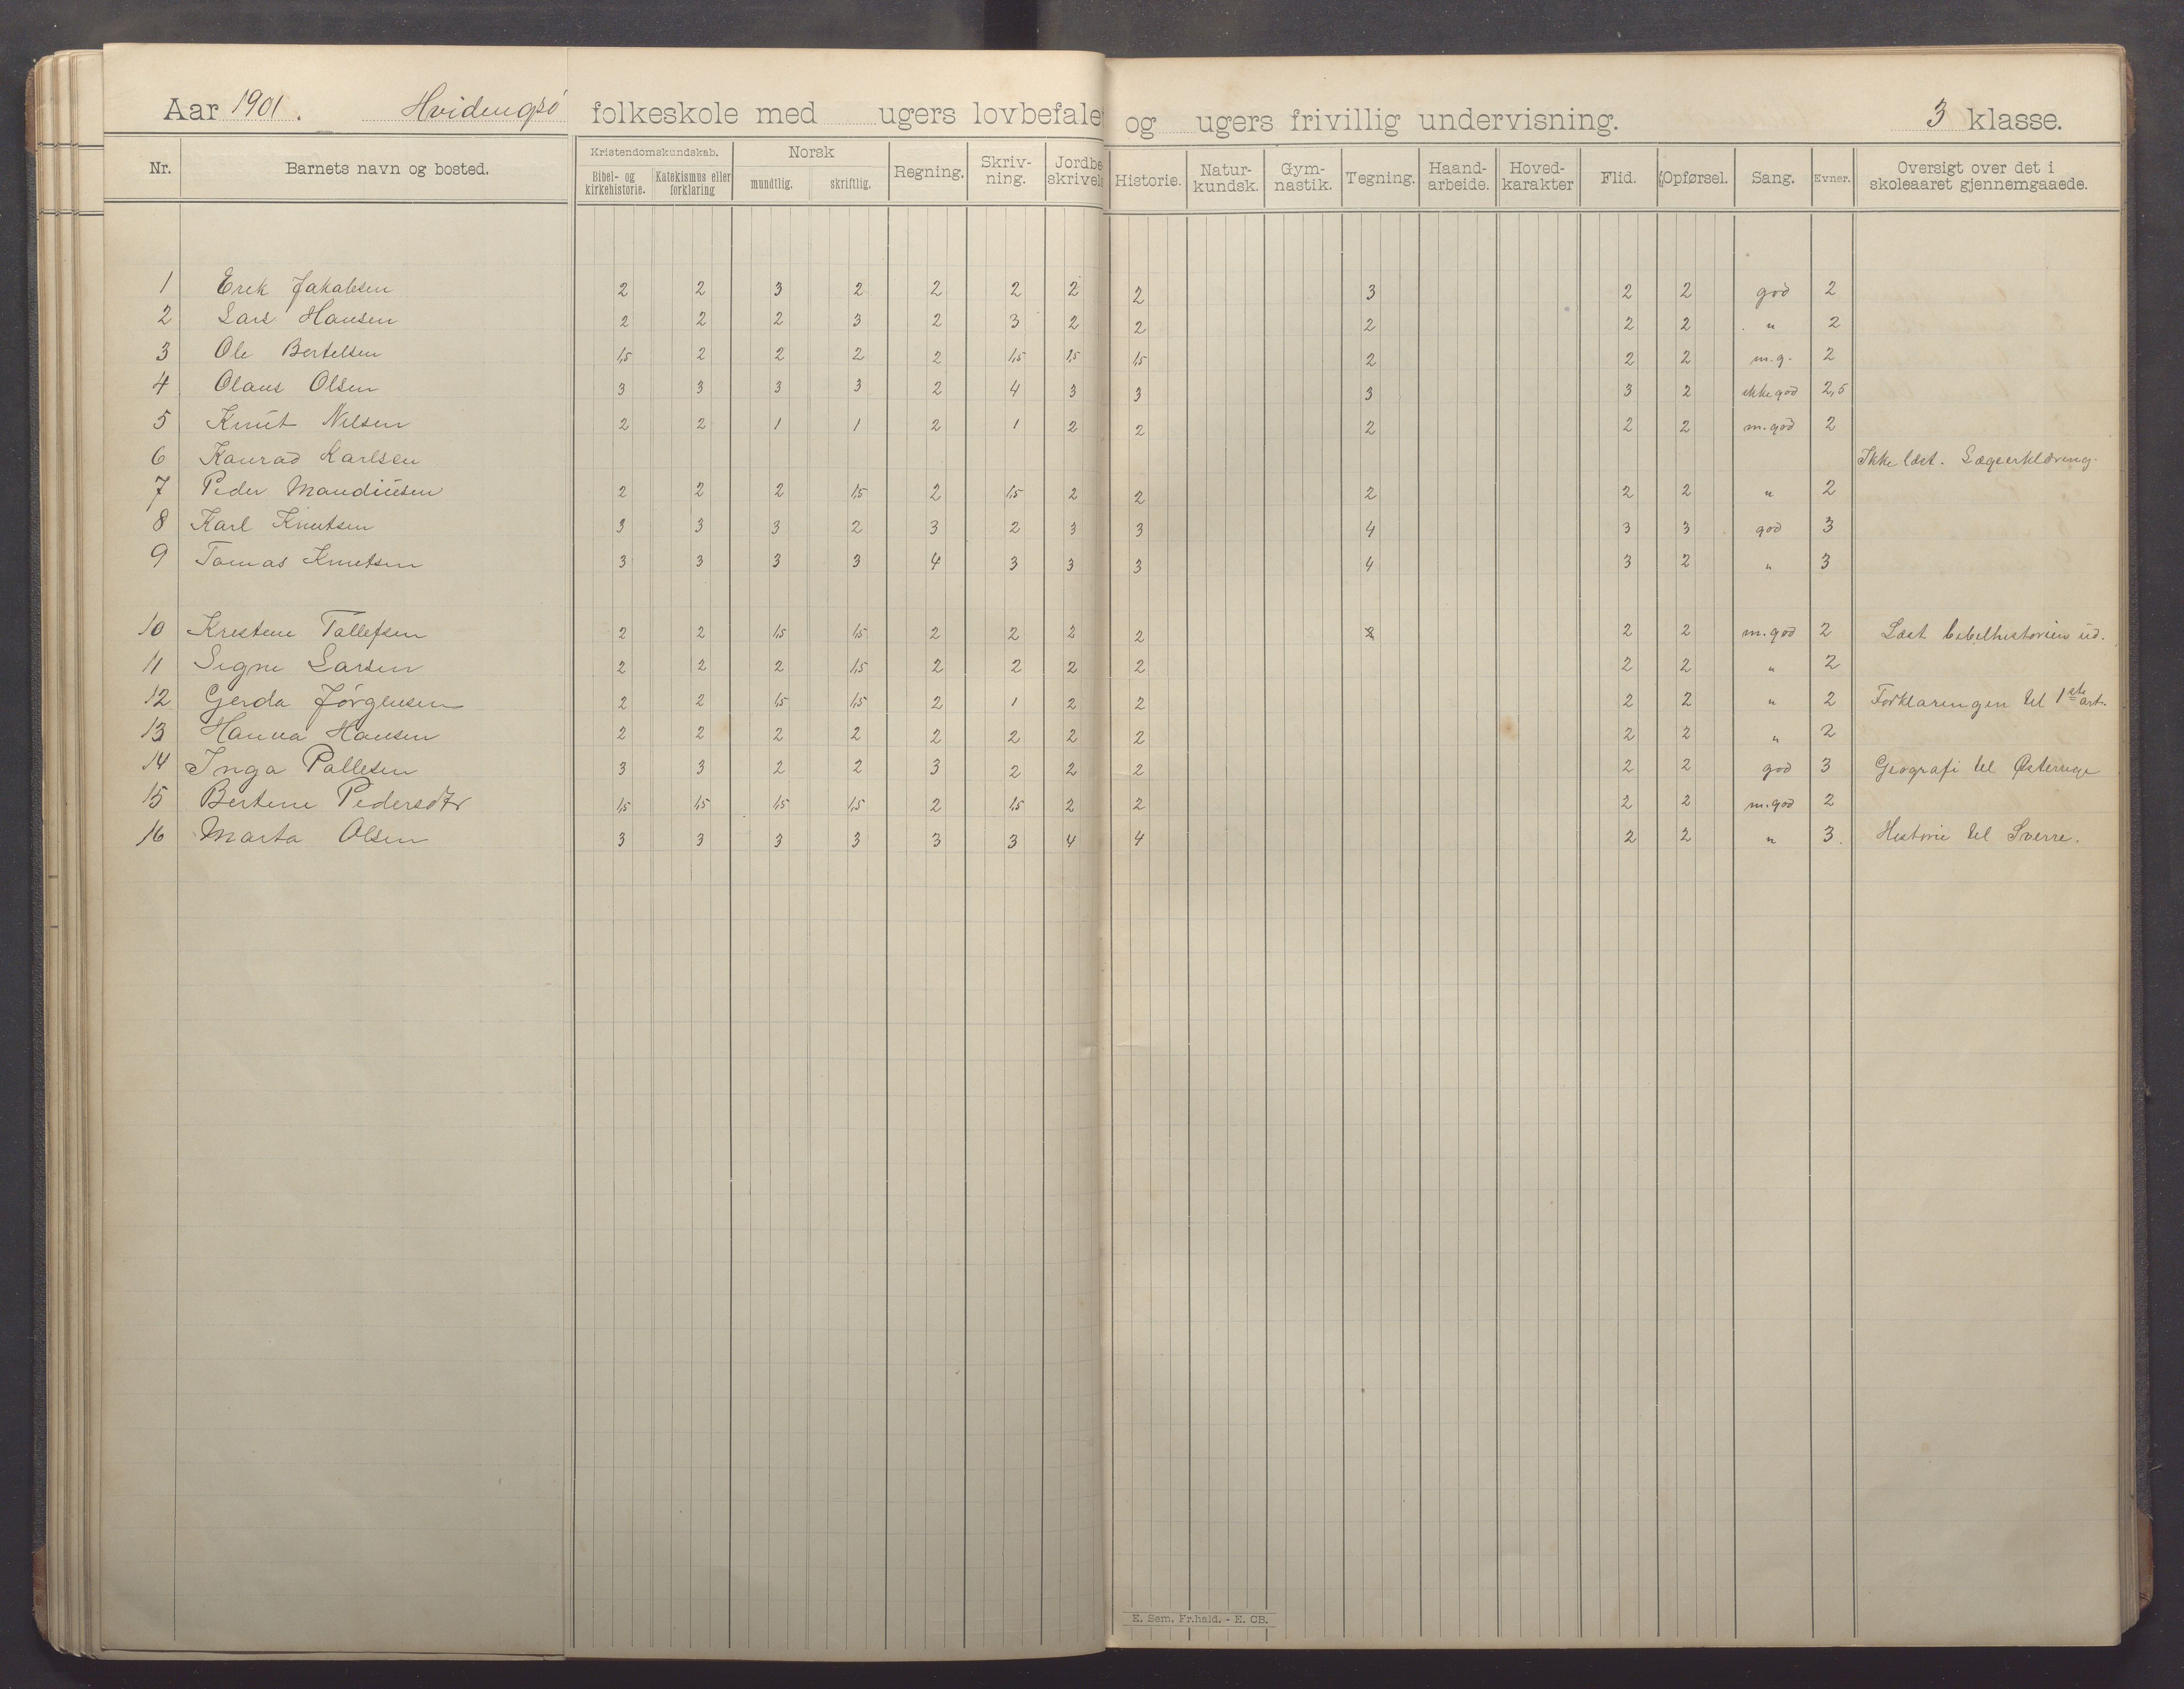 Aar 1901. Hvidingsø folkeskole med ugers lovbefalet og ugers frivillig undervisning. 3 klasse.
Nr. Barnets navn og bosted. Kristendomskundskab. Bibel- og kirkehistorie. Katekismus eller forklaring Norsk mundtlig. skriftlig. Regning. Skriv-ning. Jordbe skrivels Historie. Natur-kundsk. Gym-nastik. Tegning. Haand-arbeide. Hoved-karakter Flid. Opførsel. Sang. Evner. Oversigt over det i skoleaaret gjennemgaaede.
1 Erik Jakabsen 2 2 3 2 2 2 2 2 3 2 2 god 2
2 Lars Hansen 2 2 2 3 2 3 2 2 2 2 2 " 2
3 Ole Bertelsen 1,5 2 2 2 2 1,5 1,5 1,5 2 2 2 m.g. 2
4 Olaus Olsen 3 3 3 3 2 4 3 3 3 3 2 ikke god 2,5
5 Knut Nilsen 2 2 1 1 2 1 2 2 2 2 2 m.god 2
6 Konrad Karlsen Ikke læst. Lægeerklæring.
7 Peder Maudiusen 2 2 2 1,5 2 1,5 2 2 2 2 2 " 2
8 Karl Knutsen 3 3 3 2 3 2 3 3 4 3 3 god 3
9 Tomas Knutsen 3 3 3 3 4 3 3 3 4 3 2 " 3
10 Kristene Tallefsen 2 2 1,5 1,5 2 2 2 2 2 2 2 m.god 2 Læst bibelhistorien ud.
11 Signe Larsen 2 2 2 1,5 2 2 2 2 2 2 " 2
12 Gerda Jørgensen 2 2 1,5 1,5 2 1 2 2 2 2 " 2 Forklaringen til 1ste art.
13 Hanna Hansen 2 2 2 2 2 2 2 2 2 2 " 2
14 Inga Pallesen 3 3 2 2 3 2 2 2 2 2 god 3 Geografi til Østerige
15 Bertine Pedersdtr 1,5 1,5 1,5 1,5 2 1,5 2 2 2 2 m.god 2
16 Marta Olsen 3 3 3 3 3 3 4 4 2 2 " 3. Historie til Sverre.
E. Sem, Fr.hald. - E. CB.